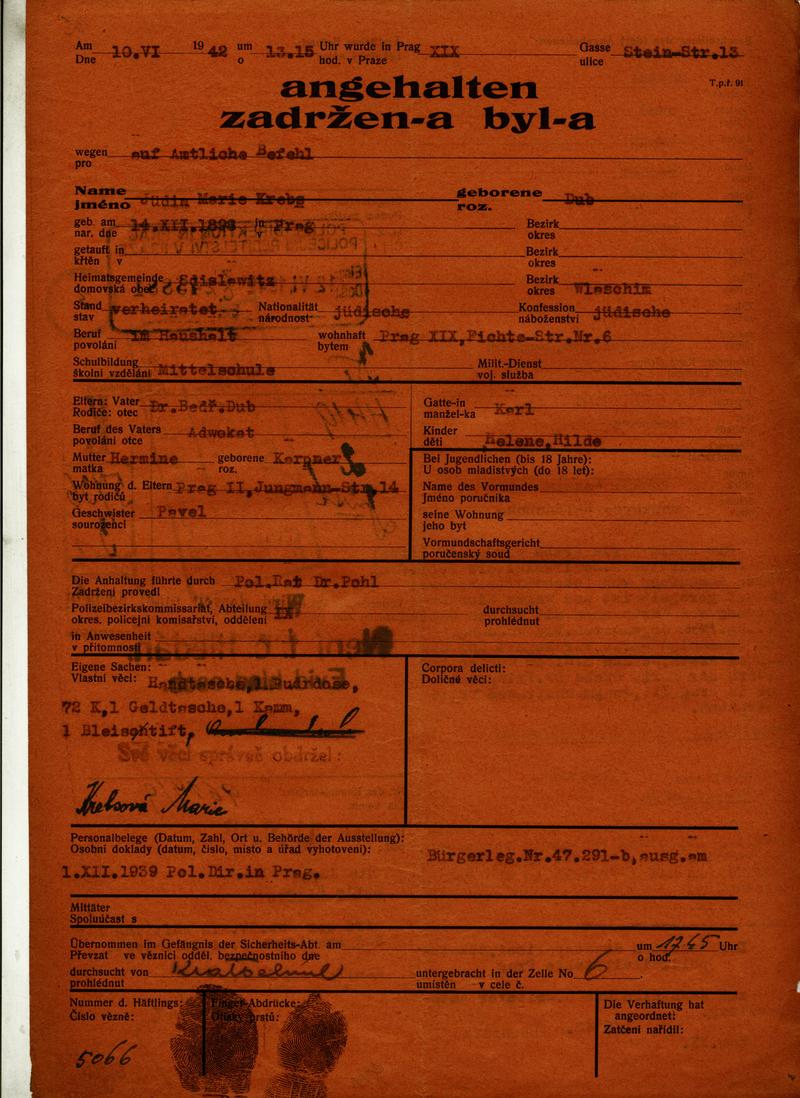 Am 10.VI 1942 um 13.15 Uhr wurde in Prag XIX Gasse Stein-Str.13
Dne o hod. v Praze ulice
angehalten
T.p.ř. 91
zadržen-a byl-a
wegen auf Amtliche Befehl
pro
Name Jüdin Marie Krebs geborene Dub
jméno roz.
geb. am 14.XII.1898 in Prag Bezirk
nar. dne v okres
getauft in Bezirk
křtěn v okres
Heimatsgemeinde Bezirk
domovská obec okres Wlaschim
Stand verheiratet Nationalität jüdische Konfession jüdische
stav národnost náboženství
Beruf im Haushalt wohnhaft Prag XIX, Fichte-Str.Nr.6
povolání bytem
Schulbildung Mittelschule Milit.-Dienst
školní vzdělání voj. služba
Eltern: Vater Dr.Bedř.Dub Gatte-in Karl
Rodiče: otec manžel-ka
Beruf des Vaters Advokat Kinder
povolání otce děti Helene,Hilde
Mutter Hermine geborene Bei Jugendlichen (bis 18 Jahre):
matka roz. U osob mladistvých (do 18 let):
Wohnung d. Eltern Prag II,Jungmann-Str.14 Name des Vormundes
byt rodičů Jméno poručníka
Geschwister Pavel seine Wohnung
sourozenci jeho byt
Vormundschaftsgericht
poručenský soud
Die Anhaltung führte durch Pol.Rat Dr.Pohl
Zadržení provedl
Polizeibezirkskommissariat, Abteilung durchsucht
okres. policejní komisařství, oddělení prohlédnut
in Anwesenheit
v přítomnosti
Eigene Sachen: Corpora delicti:
Vlastní věci: Handtasche,1 Puderdose, Doličné věci:
72 K,1 Geldtasche,1 Kamm,
1 Bleistift,
Své věci správně obdržel:
Krebsová Marie
Personalbelege (Datum, Zahl, Ort u. Behörde der Ausstellung):
Osobní doklady (datum, číslo, místo a úřad vyhotovení): Bürgerleg.Nr.47.291-b,ausg.am
1.XII.1939 Pol.Dir.in Prag.
Mittäter
Spoluúčast s
Übernommen im Gefängnis der Sicherheits-Abt. am um 1745 Uhr
Převzat ve věznici odděl. bezpečnostního dne o hod.
durchsucht von untergebracht in der Zelle No 6
prohlédnut umístěn v cele č.
Nummer d. Häftlings: Finger-Abdrücke: Die Verhaftung hat
Číslo vězně: Otisky prstů: angeordnet:
Zatčení nařídil:
5066